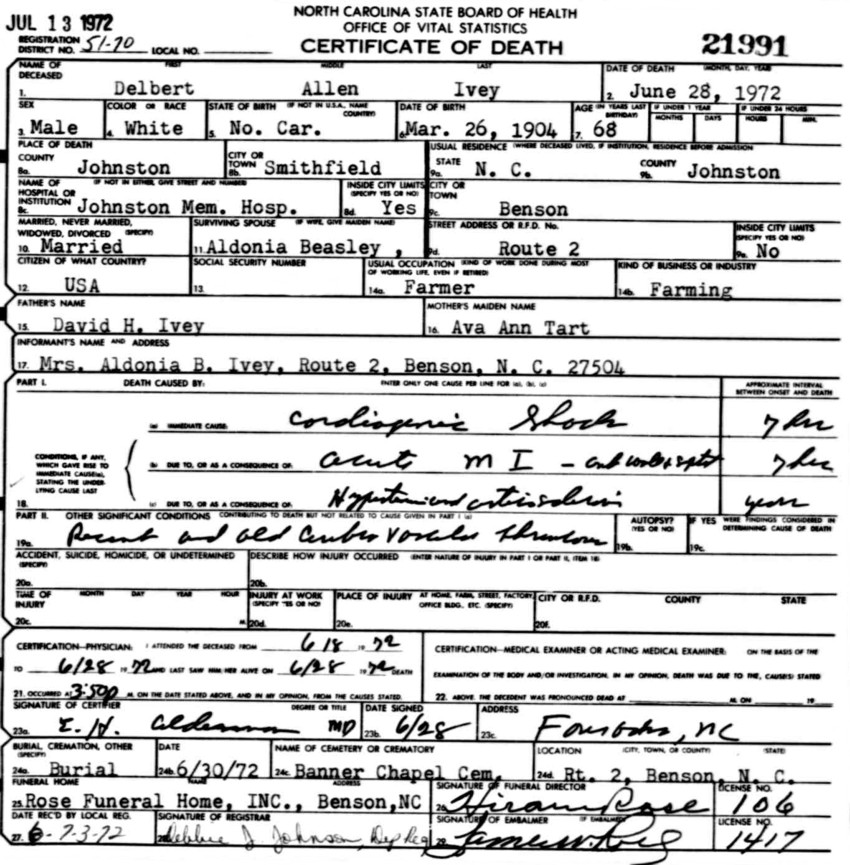 JUL 13 1972
NORTH CAROLINA STATE BOARD OF HEALTH
OFFICE OF VITAL STATISTICS
REGISTRATION DISTRICT NO. 51-70 LOCAL NO. CERTIFICATE OF DEATH 21991
NAME OF DECEASED FIRST MIDDLE LAST DATE OF DEATH (MONTH, DAY, YEAR)
1. Delbert Allen Ivey 2. June 28, 1972
SEX COLOR OR RACE STATE OF BIRTH (IF NOT IN U.S.A., NAME COUNTRY) DATE OF BIRTH AGE (IN YEARS LAST BIRTHDAY) IF UNDER 1 YEAR IF UNDER 24 HOURS
MONTHS DAYS HOURS MIN.
3. Male 4. White 5. No. Car. 6. Mar. 26, 1904 7. 68
PLACE OF DEATH USUAL RESIDENCE (WHERE DECEASED LIVED, IF INSTITUTION, RESIDENCE BEFORE ADMISSION
COUNTY CITY OR TOWN STATE COUNTY
8a. Johnston 8b. Smithfield 9a. N. C. 9b. Johnston
NAME OF HOSPITAL OR INSTITUTION (IF NOT IN EITHER, GIVE STREET AND NUMBER) INSIDE CITY LIMITS (SPECIFY YES OR NO) CITY OR TOWN
8c. Johnston Mem. Hosp. 8d. Yes 9c. Benson
MARRIED, NEVER MARRIED, WIDOWED, DIVORCED (SPECIFY) SURVIVING SPOUSE (IF WIFE, GIVE MAIDEN NAME) STREET ADDRESS OR R.F.D. No. INSIDE CITY LIMITS (SPECIFY YES OR NO)
10. Married 11. Aldonia Beasley , 9d. Route 2 9e. No
CITIZEN OF WHAT COUNTRY? SOCIAL SECURITY NUMBER USUAL OCCUPATION (KIND OF WORK DONE DURING MOST OF WORKING LIFE, EVEN IF RETIRED) KIND OF BUSINESS OR INDUSTRY
12. USA 13. 14a. Farmer 14b. Farming
FATHER'S NAME MOTHER'S MAIDEN NAME
15. David H. Ivey 16. Ava Ann Tart
INFORMANT'S NAME AND ADDRESS
17. Mrs. Aldonia B. Ivey, Route 2, Benson, N. C. 27504
PART I. DEATH CAUSED BY: ENTER ONLY ONE CAUSE PER LINE FOR (a), (b), (c) APPROXIMATE INTERVAL BETWEEN ONSET AND DEATH
(a) IMMEDIATE CAUSE: Cardiogenic Shock 7 hrs
CONDITIONS, IF ANY, WHICH GAVE RISE TO IMMEDIATE CAUSE(a), STATING THE UNDERLYING CAUSE LAST
(b) DUE TO, OR AS A CONSEQUENCE OF: acute M I 7 hrs
18. (c) DUE TO, OR AS A CONSEQUENCE OF: years
PART II. OTHER SIGNIFICANT CONDITIONS CONTRIBUTING TO DEATH BUT NOT RELATED TO CAUSE GIVEN IN PART I (a) AUTOPSY? (YES OR NO) IF YES WERE FINDINGS CONSIDERED IN DETERMINING CAUSE OF DEATH
19a. Recent and old 19b. 19c.
ACCIDENT, SUICIDE, HOMICIDE, OR UNDETERMINED (SPECIFY) DESCRIBE HOW INJURY OCCURRED (ENTER NATURE OF INJURY IN PART I OR PART II, ITEM 18)
20a. 20b.
TIME OF INJURY MONTH DAY YEAR HOUR INJURY AT WORK (SPECIFY YES OR NO) PLACE OF INJURY AT HOME, FARM, STREET, FACTORY, OFFICE BLDG., ETC. (SPECIFY) CITY OR R.F.D. COUNTY STATE
20c. M. 20d. 20e. 20f.
CERTIFICATION—PHYSICIAN: I ATTENDED THE DECEASED FROM 6 18 1972 CERTIFICATION—MEDICAL EXAMINER OR ACTING MEDICAL EXAMINER: ON THE BASIS OF THE
TO 6/28 1972 AND LAST SAW HIM HER ALIVE ON 6/28 1972 DEATH EXAMINATION OF THE BODY AND/OR INVESTIGATION, IN MY OPINION, DEATH WAS DUE TO THE, CAUSE(S) STATED
21. OCCURRED AT M. ON THE DATE STATED ABOVE, AND IN MY OPINION, FROM THE CAUSES STATED. 22. ABOVE. THE DECEDENT WAS PRONOUNCED DEAD AT M. ON 19
SIGNATURE OF CERTIFIER DEGREE OR TITLE DATE SIGNED ADDRESS
23a. E. H. Alderman MD 23b. 6/28 23c. Four Oaks, NC
BURIAL, CREMATION, OTHER (SPECIFY) DATE NAME OF CEMETERY OR CREMATORY LOCATION (CITY, TOWN, OR COUNTY) (STATE)
24a. Burial 24b. 6/30/72 24c. Banner Chapel Cem. 24d. Rt. 2, Benson, N. C.
FUNERAL HOME NAME ADDRESS SIGNATURE OF FUNERAL DIRECTOR LICENSE NO.
25. Rose Funeral Home, INC., Benson,NC 26. Hiram Rose 106
DATE REC'D BY LOCAL REG. SIGNATURE OF REGISTRAR SIGNATURE OF EMBALMER (IF EMBALMED) LICENSE NO.
27. 7-3-72 28. Debbie J Johnson, Dep Reg 29. James W. Rose 1417